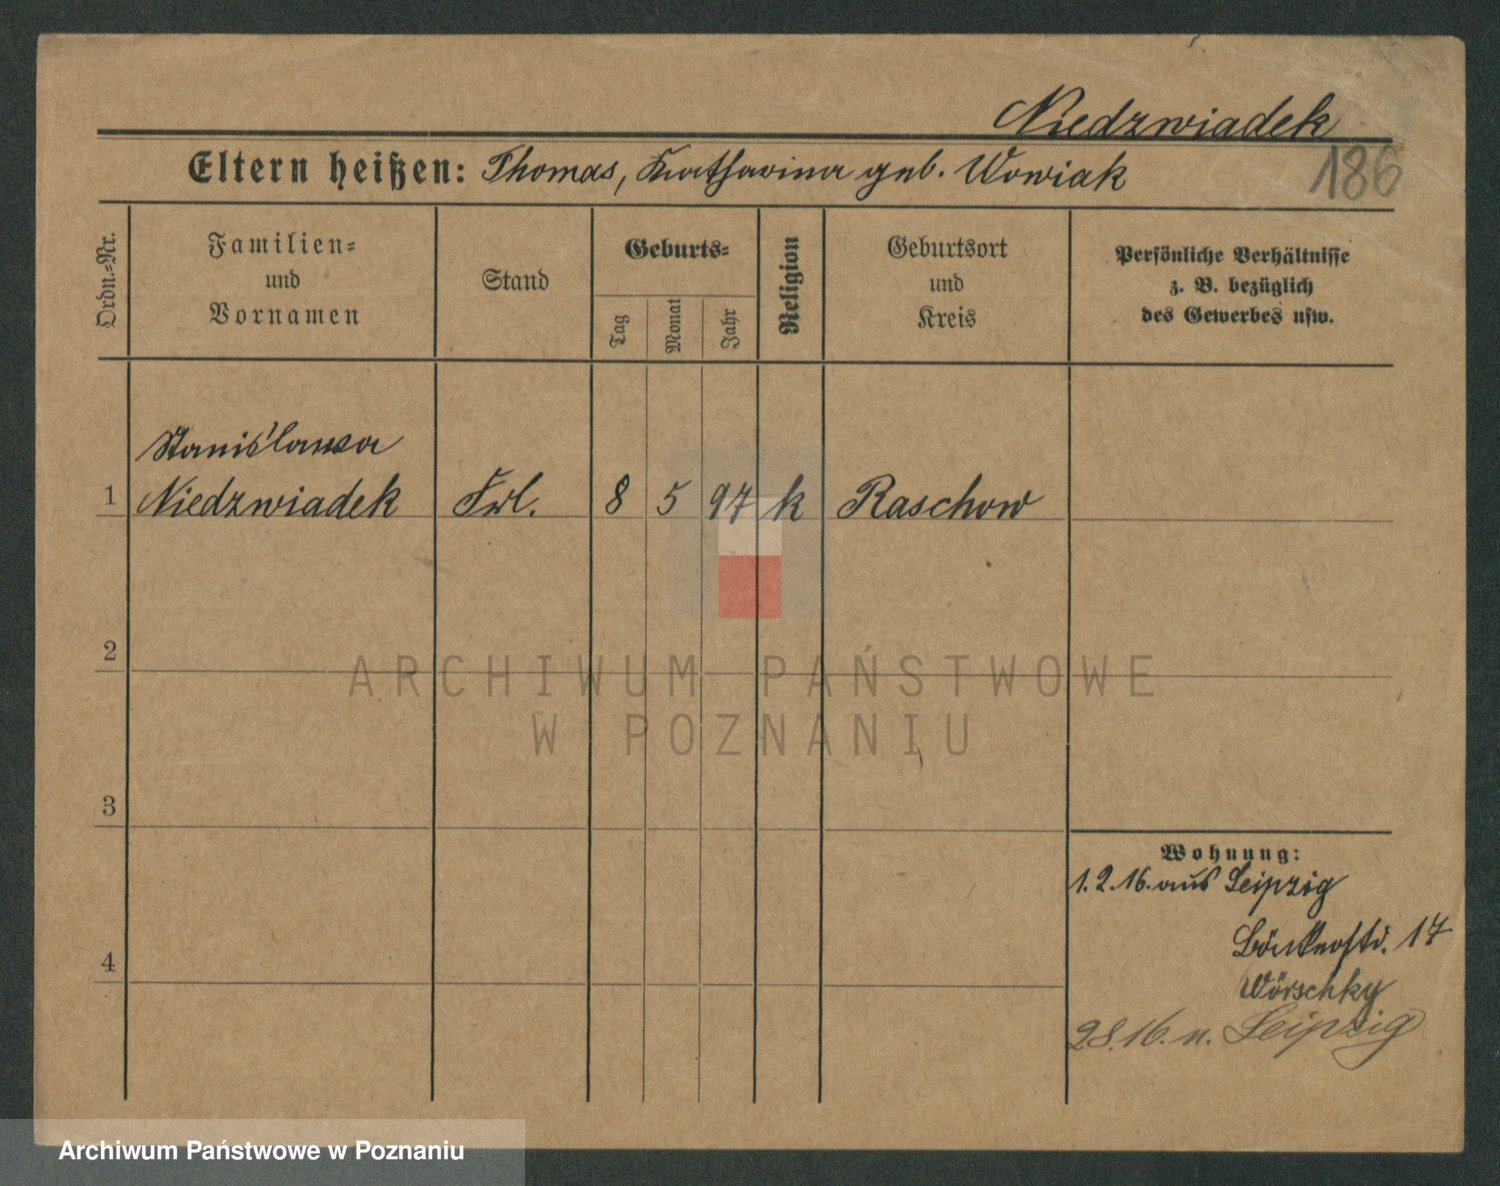 Niedzwiadek
186
Eltern heißen: Thomas, Katharina geb. Wowiak
Ordn.-Nr.
Familien-
und
Vornamen
Stand
Geburts-
Tag
Monat
Jahr
Religion
Geburtsort
und
Kreis
Persönliche Verhältnisse
z. B. bezüglich
des Gewerbes usw.
Stanislawa
1 Niedzwiadek Frl. 8 5 97 k Raschow
2
3
4
Wohnung:
1.2.16. aus Leipzig
17
Wörschky
28.16. n. Leipzig
ARCHIWUM PAŃSTWOWE
W POZNANIU
Archiwum Państwowe w Poznaniu